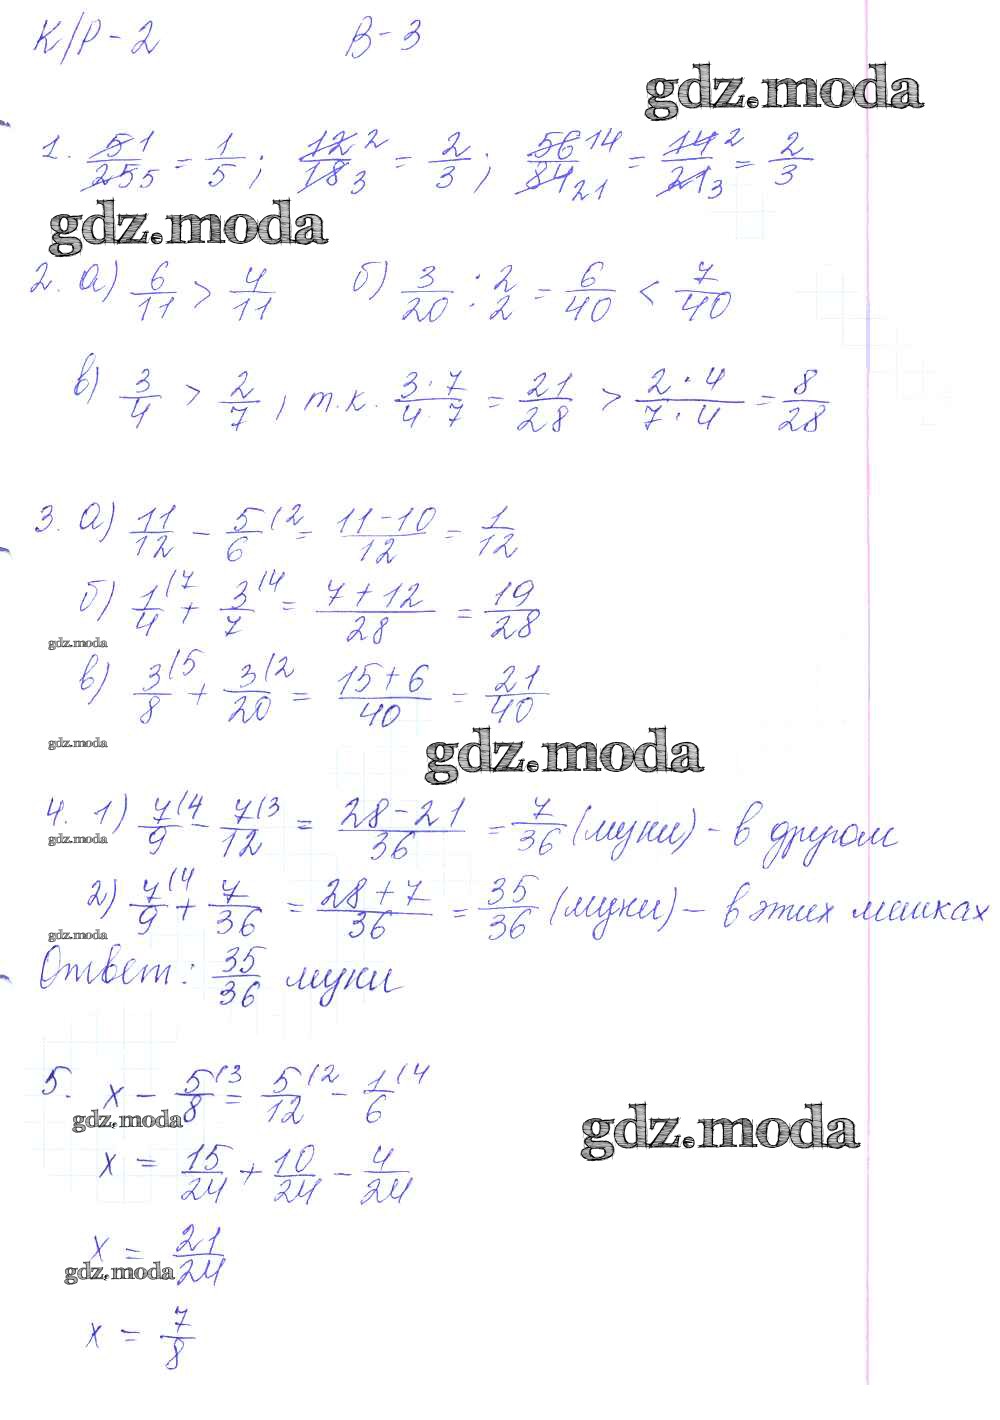 К/Р - 2 В - 3
gdz.moda
1. 5 1/25 5 = 1/5; 12 2/18 3 = 2/3; 56 14/84 21 = 14 2/21 3 = 2/3
gdz.moda
2. а) 6/11 > 4/11 б) 3/20 : 2/2 = 6/40 < 7/40
в) 3/4 > 2/7, т.к. 3·7/4·7 = 21/28 > 2·4/7·4 = 8/28
3. а) 11/12 - 5/6 (2 = 11-10/12 = 1/12
б) 1/4 (7 + 3/7 (4 = 7+12/28 = 19/28
gdz.moda
в) 3/8 (5 + 3/20 (2 = 15+6/40 = 21/40
gdz.moda
gdz.moda
4. 1) 7/9 (4 - 7/12 (3 = 28-21/36 = 7/36 (муки) - в другом
gdz.moda
2) 7/9 (4 + 7/36 = 28+7/36 = 35/36 (муки) - в этих мешках
gdz.moda
Ответ: 35/36 муки
5. x - 5/8 (3 = 5/12 (2 - 1/6 (4
gdz.moda
gdz.moda
x = 15/24 + 10/24 - 4/24
x = 21/24
gdz.moda
x = 7/8